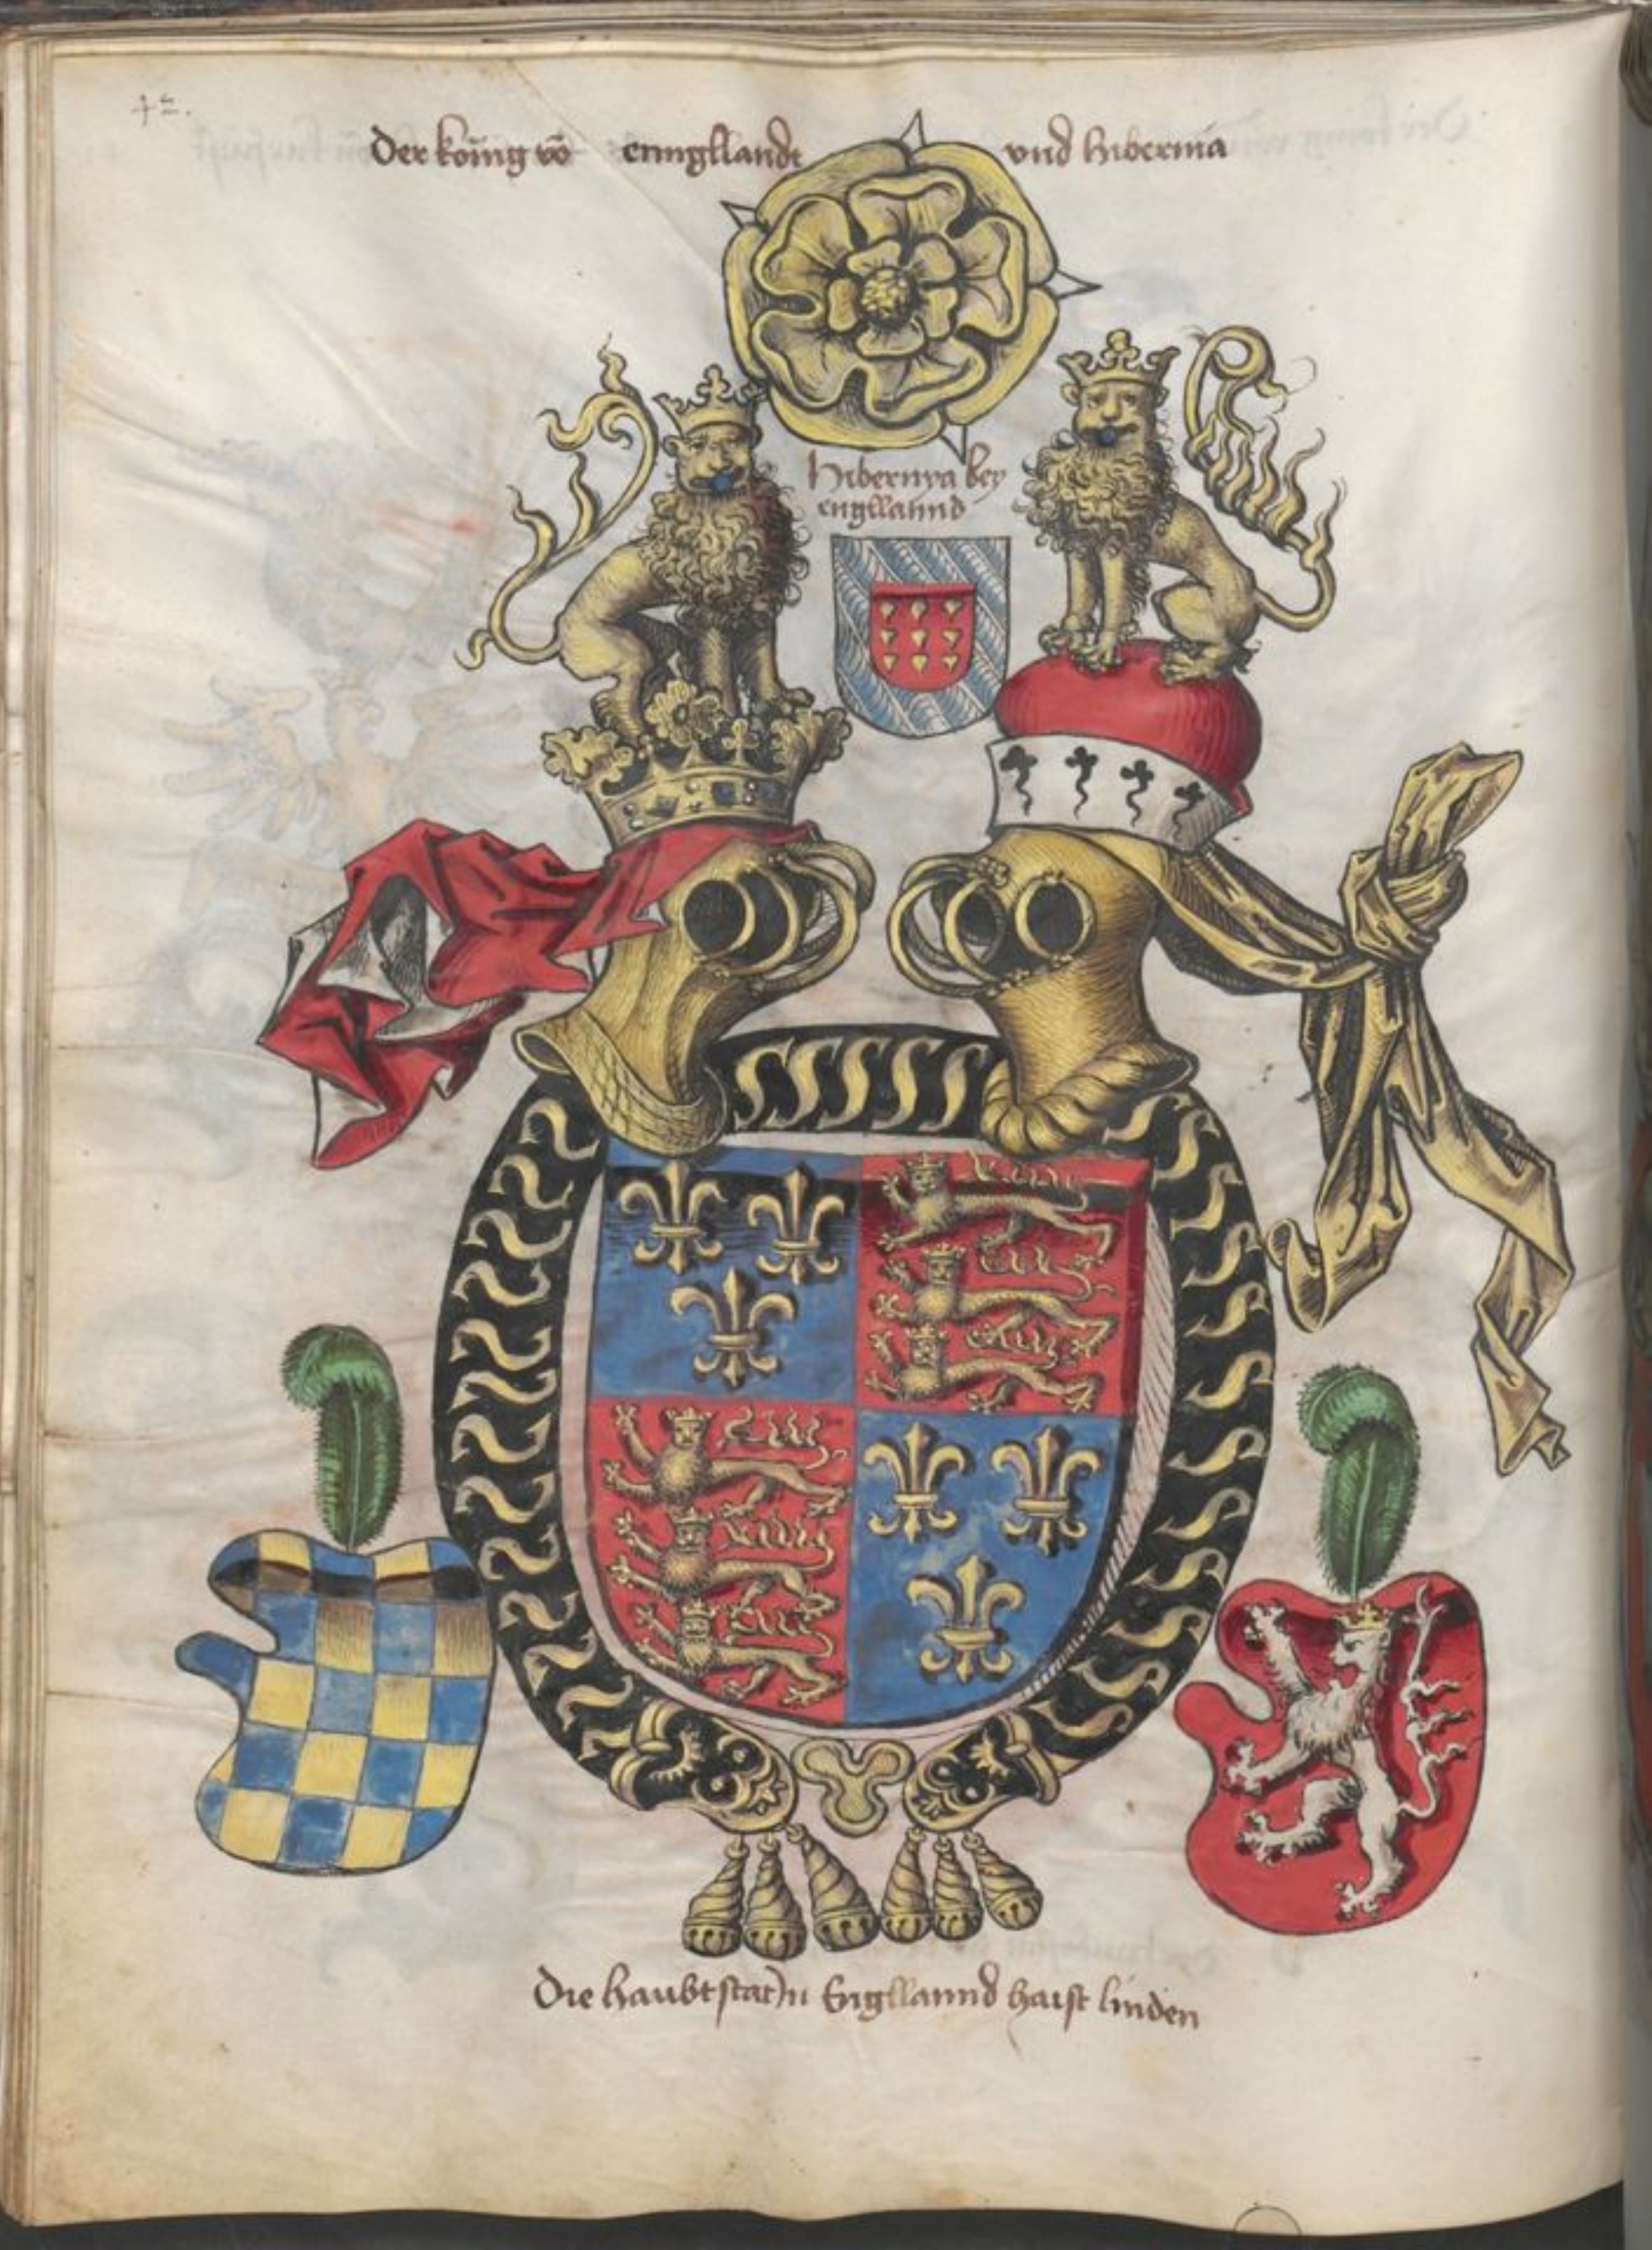 42.
Der konig vō enngllandt und hibernia
Hibernya bey
engllannd
SSSSS
Die haubtstat jn Engllannd haist linden